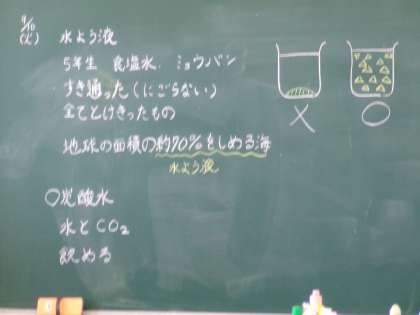 9/10
(火)
水よう液
5年生 食塩水、ミョウバン
すき通った(にごらない)
全てとけきったもの
×
○
地球の面積の約70%をしめる海
水よう液
○炭酸水
水とCO₂
飲める